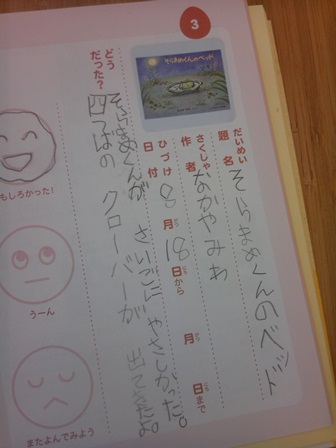 3
そらまめくんのベッド
だいめい
題名 そらまめくんのベット
さくしゃ
作者 なかやみわ
ひづけ
日付 8月18日から 月 日まで
どうだった?
そらまめくんが さいごに やさしかった。
四つばの クローバーが 出てきたよ。
もしろかった!
うーん
またよんでみよう